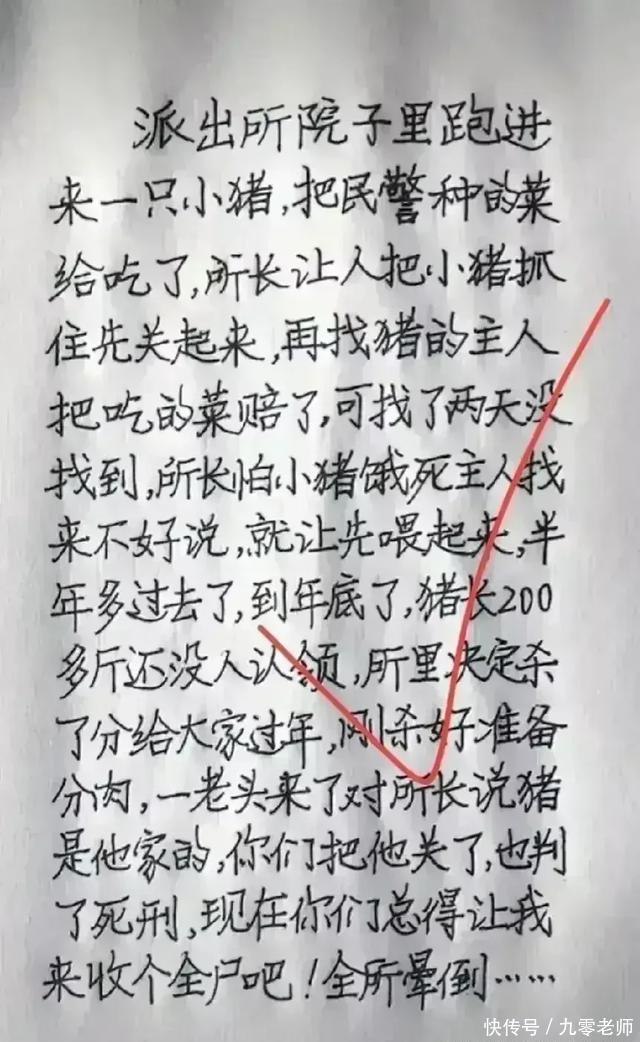 派出所院子里跑进
来一只小猪，把民警种的菜
给吃了，所长让人把小猪抓
住先关起来，再找猪的主人
把吃的菜赔了，可找了两天没
找到，所长怕小猪饿死主人找
来不好说，就让先喂起来，半
年多过去了，到年底了，猪长200
多斤还没人认领，所里决定杀
了分给大家过年，刚杀好准备
分肉，一老头来了对所长说猪
是他家的，你们把他关了，也判
了死刑，现在你们总得让我
来收个全尸吧！全所晕倒……
快传号/九零老师